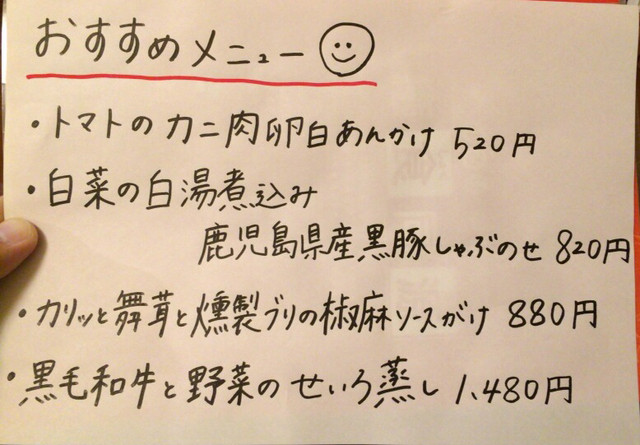 おすすめメニュー
・トマトのカニ肉卵白あんかけ 520円
・白菜の白湯煮込み
鹿児島県産黒豚しゃぶのせ 820円
・カリッと舞茸と燻製ブリの椒麻ソースがけ 880円
・黒毛和牛と野菜のせいろ蒸し 1,480円